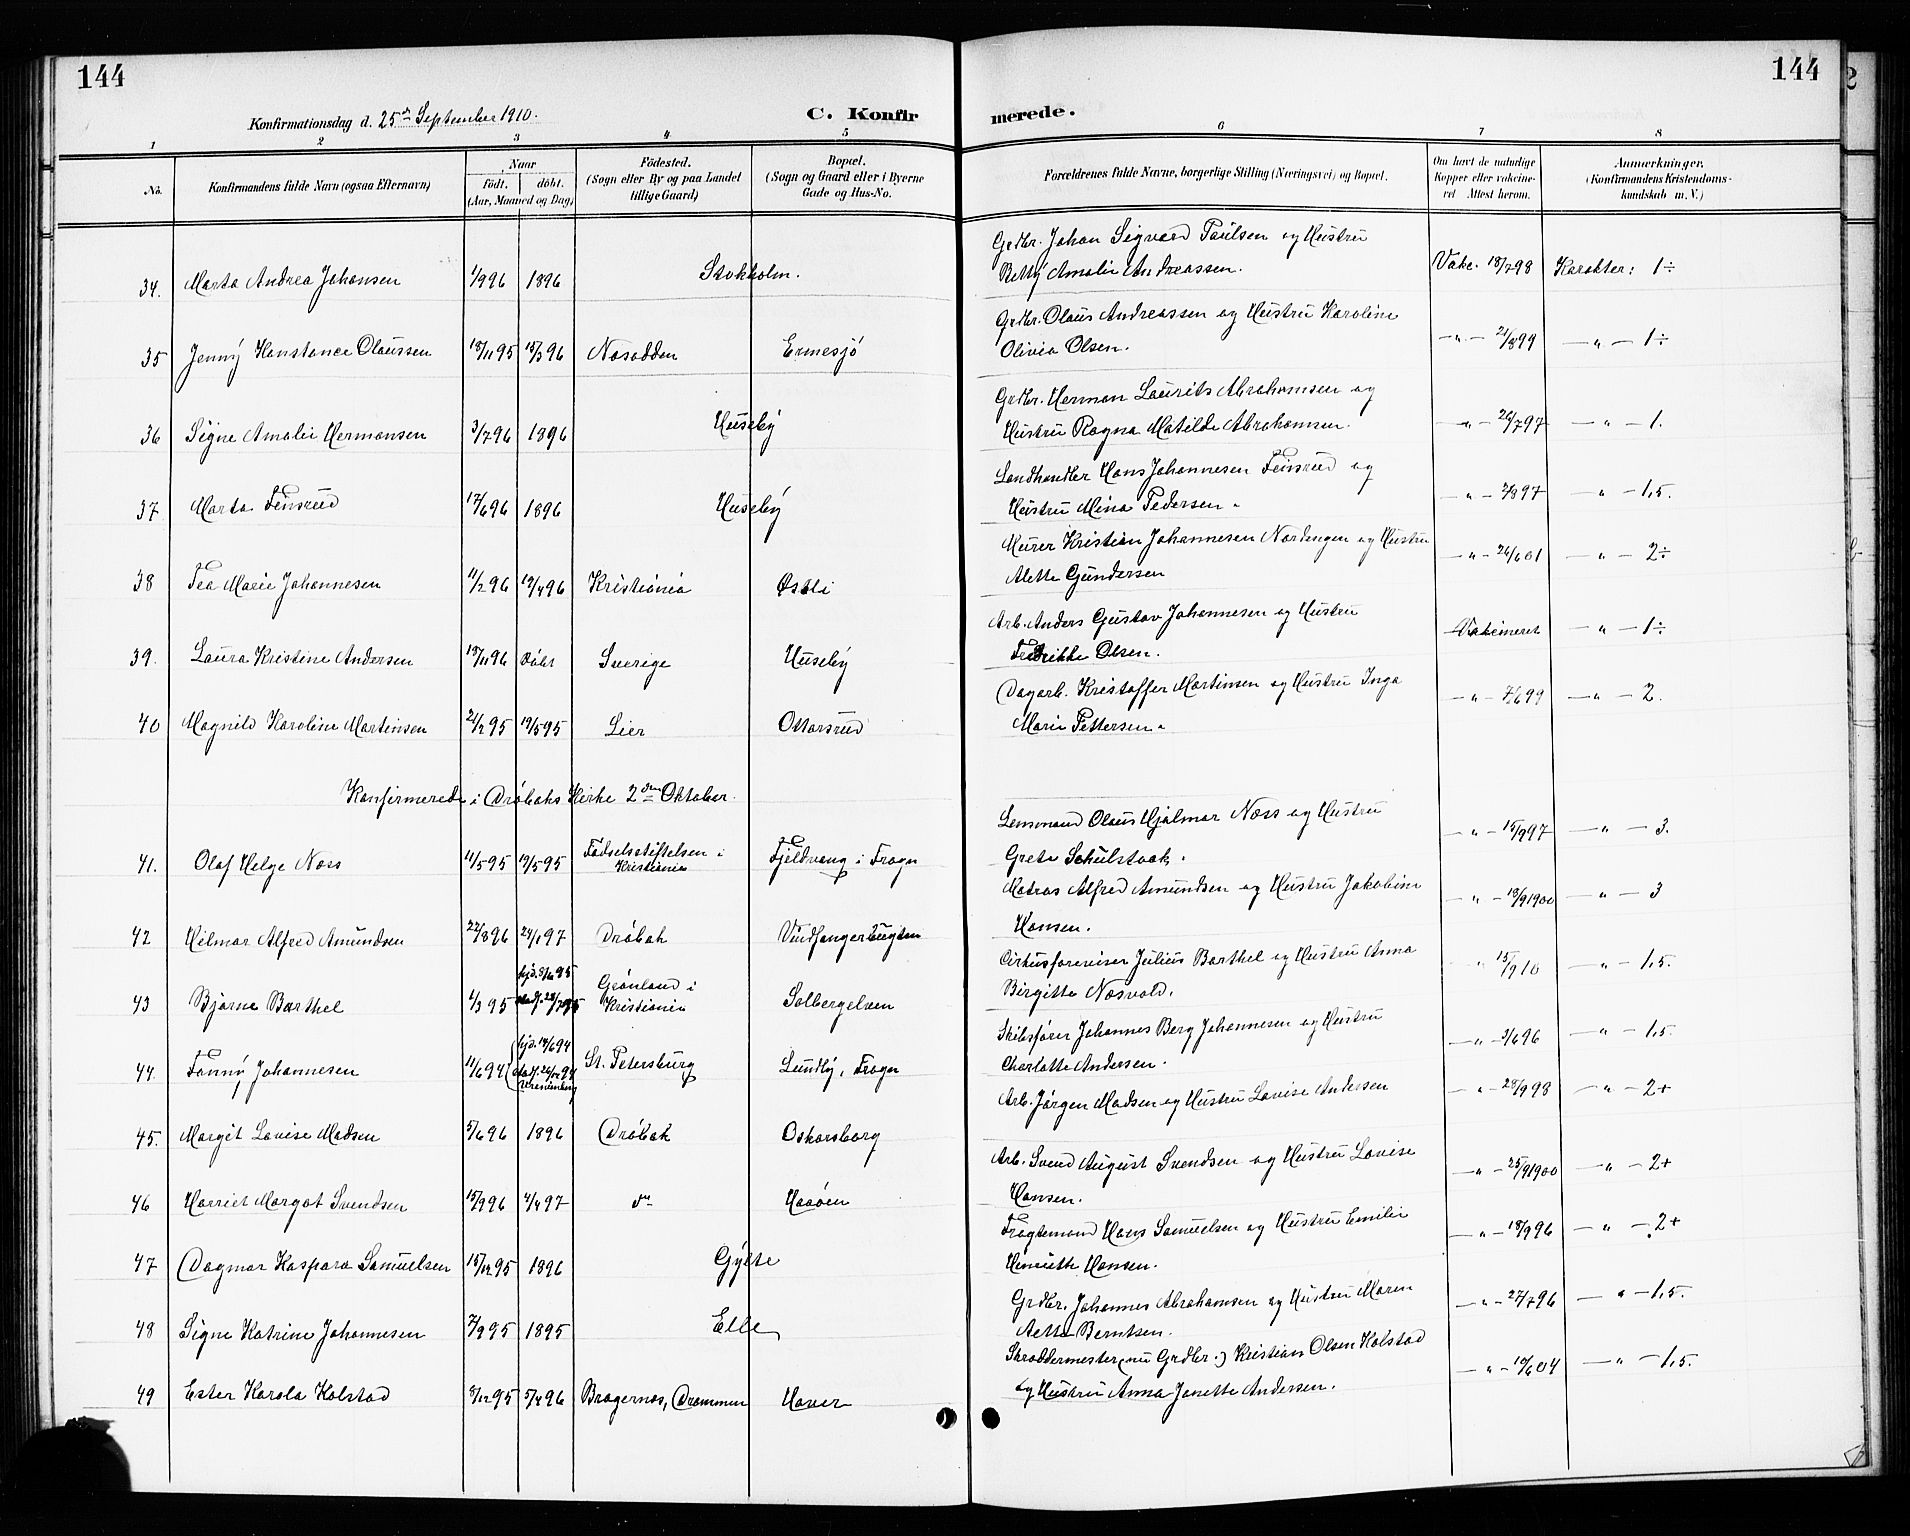 144
144
Konfirmationsdag d. 25de September 1910.
C. Konfirmerede.
1 2 3 4 5 6 7 8
No.
Konfirmandens fulde Navn (ogsaa Efternavn)
Naar
født. døbt.
(Aar, Maaned og Dag)
Födested.
(Sogn eller By og paa Landet
tillige Gaard)
Bopæl.
(Sogn og Gaard eller i Byerne
Gade og Hus-No.
Forældrenes fulde Navne, borgerlige Stilling (Næringsvei) og Bopæl.
Om havt de naturlige
Kopper eller vakcine-
ret Attest herom.
Anmærkninger.
(Konfirmandens Kristendoms-
kundskab m. V.)
Grdbr. Johan Sigvard Paulsen og Hustru
34. Marta Andrea Johansen 1/9 96 1896 Stokholm. Betty Amalie Andreassen. Vakc. 18/7 98 Karakter: 1÷
Grdbr. Olaus Andreassen og Hustru Karoline
35 Jenny Konstance Claussen 18/11 95 15/3 96 Nesodden Ermesjö Olivia Olsen. — „ — 21/8 99 — „ — 1÷
Grdbr. Herman Laurits Abrahamsen og
36 Signe Amalie Hermansen 3/7 96 1896 Huseby Hustru Ragna Matilde Abrahamsen. — „ — 26/7 97 — „ — 1.
Landhandler Hans Johannesen Feinsrud og
37 Marta Feinsrud 17/6 96 1896 Huseby Hustru Mina Pedersen. — „ — 2/8 97 — „ — 1,5.
Murer Kristian Johannesen Nordengen og Hustru
38 Tea Marie Johannesen 11/2 96 19/4 96 Kristiania Østbi Alette Gundersen — „ — 26/6 01 — „ — 2÷
Arb. Anders Gustav Johannesen og Hustru
39. Laura Kristine Andersen 19/11 96 Döbt Sverige Huseby Fredrikke Olsen. Vakcineret — „ — 1÷
Dagarb. Kristoffer Martinsen og Hustru Inga
40 Magnild Karoline Martinsen 21/2 95 19/5 95 Lier Ottarsrud Marie Pettersen. — „ — 7/6 99 — „ — 2.
Konfirmerede i Dröbaks Kirke 2den Oktober.
Lensmand Olaus Hjalmar Næss og Hustru
41. Olaf Helge Næss 11/5 95 19/5 95 Födselsstiftelsen i Kristiania Fjeldvang i Frogn Grete Schulstock. — „ — 15/9 97 — „ — 3.
Matros Alfred Amundsen og Hustru Jakobine
42 Hilmar Alfred Amundsen 22/8 96 24/1 97 Dröbak Vindfangerbugten Hansen. — „ — 18/9 1900 — „ — 3
Cirkusforeviser Julius Barthel og Hustru Anna
43 Bjarne Barthel 1/3 95 hjd. stadf. Grönland i Kristiania Solbergelven Birgitte Næsvold. „ 15/9 10 — „ — 1,5.
Skibsförer Johannes Berg Johannesen og Hustru
44. Fanny Johannesen 11/6 94 hjd. 14/6 94 stadf. St. Petersburg Lundby, Frogn Charlotte Andersen. — „ — 3/6 96 — „ — 1,5
Arb. Jörgen Madsen og Hustru Lovise Andersen
45. Margit Lovise Madsen 5/6 96 1896 Dröbak Oskarsborg — „ — 28/9 98 — „ — 2+
Arb. Svend August Svendsen og Hustru Lovise
46 Harriet Margot Svendsen 15/9 96 4/4 97 do Haaöen Hansen. — „ — 25/9 1900 — „ — 2+
Fragtemand Hans Samuelsen og Hustru Emilie
47 Dagmar Kaspara Samuelsen 15/12 95 1896 Gylte Henriette Hansen. — „ — 18/9 96 — „ — 2+
Grdbr. Johannes Abrahamsen og Hustru Maren
48 Signe Katrine Johannesen 7/9 95 1895 Elle Aette Berntsen. — „ — 27/7 96 — „ — 1,5.
Skræddermester (nu Grdbr.) Kristian Olsen Kolstad
49 Ester Karola Kolstad 8/12 95 5/4 96 Bragernæs, Drammen Haver og Hustru Anna Janette Andersen. — „ — 10/6 04 — „ — 1,5.